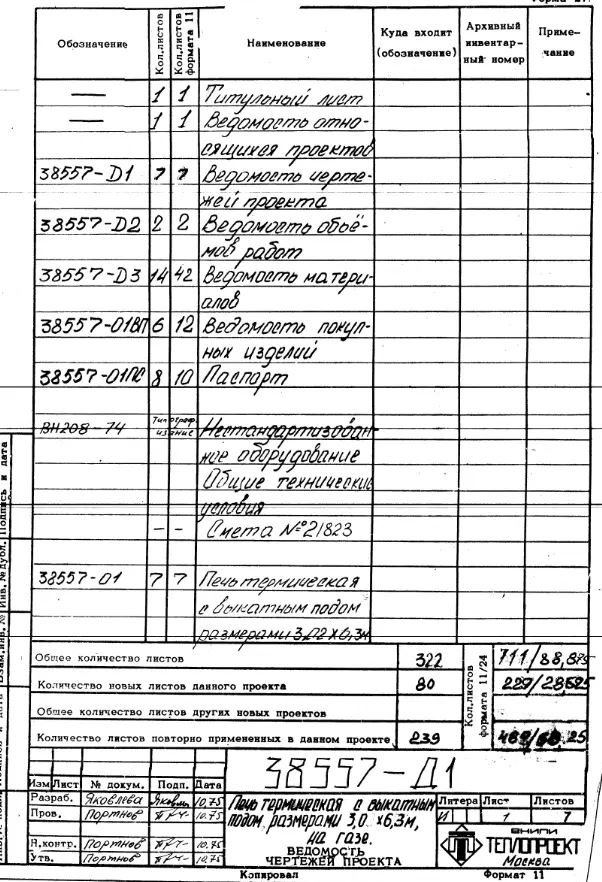 Форма 2
Обозначение
Кол.листов
Кол.листов формата 11
Наименование
Куда входит (обозначение)
Архивный инвентарный номер
Примечание
— 1 1 Титульный лист
— 1 1 Ведомость отно-
сящихся проектов
38557-Д1 7 7 Ведомость черте-
жей проекта
38557-Д2 2 2 Ведомость объё-
мов работ
38557-Д3 14 42 Ведомость матери-
алов
38557-01ВП 6 12 Ведомость покуп-
ных изделий
38557-01ПС 8 10 Паспорт
ВН208-74 Типограф. издание Нестандартизован-
ное оборудование
Общие технические
условия
— — Смета №21823
38557-01 7 7 Печь термическая
с выкатным подом
размерами 3,02х6,3м
Общее количество листов 322
Кол.листов формата 11/24
711/88,875
Количество новых листов данного проекта 80 229/28,625
Общее количество листов других новых проектов
Количество листов повторно примененных в данном проекте 239
38557-Д1
Изм Лист № докум. Подп. Дата
Разраб. Яковлева 10.75
Пров. Портнов 10.75
Н.контр. Портнов 10.75
Утв. Портнов 10.75
Печь термическая с выкатным
подом размерами 3,0х6,3м,
на газе.
ВЕДОМОСТЬ
ЧЕРТЕЖЕЙ ПРОЕКТА
Литера Лист Листов
И 1 7
ВНИПИ
ТЕПЛОПРОЕКТ
Москва
Копировал Формат 11
Подпись и дата
Инв.№ дубл.
Взам.инв.№